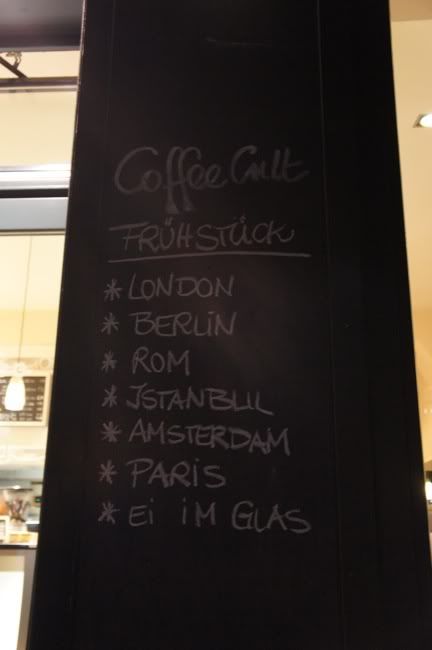 Coffee Cult
FRÜHSTÜCK
* LONDON
* BERLIN
* ROM
* ISTANBUL
* AMSTERDAM
* PARIS
* Ei iM GLAS